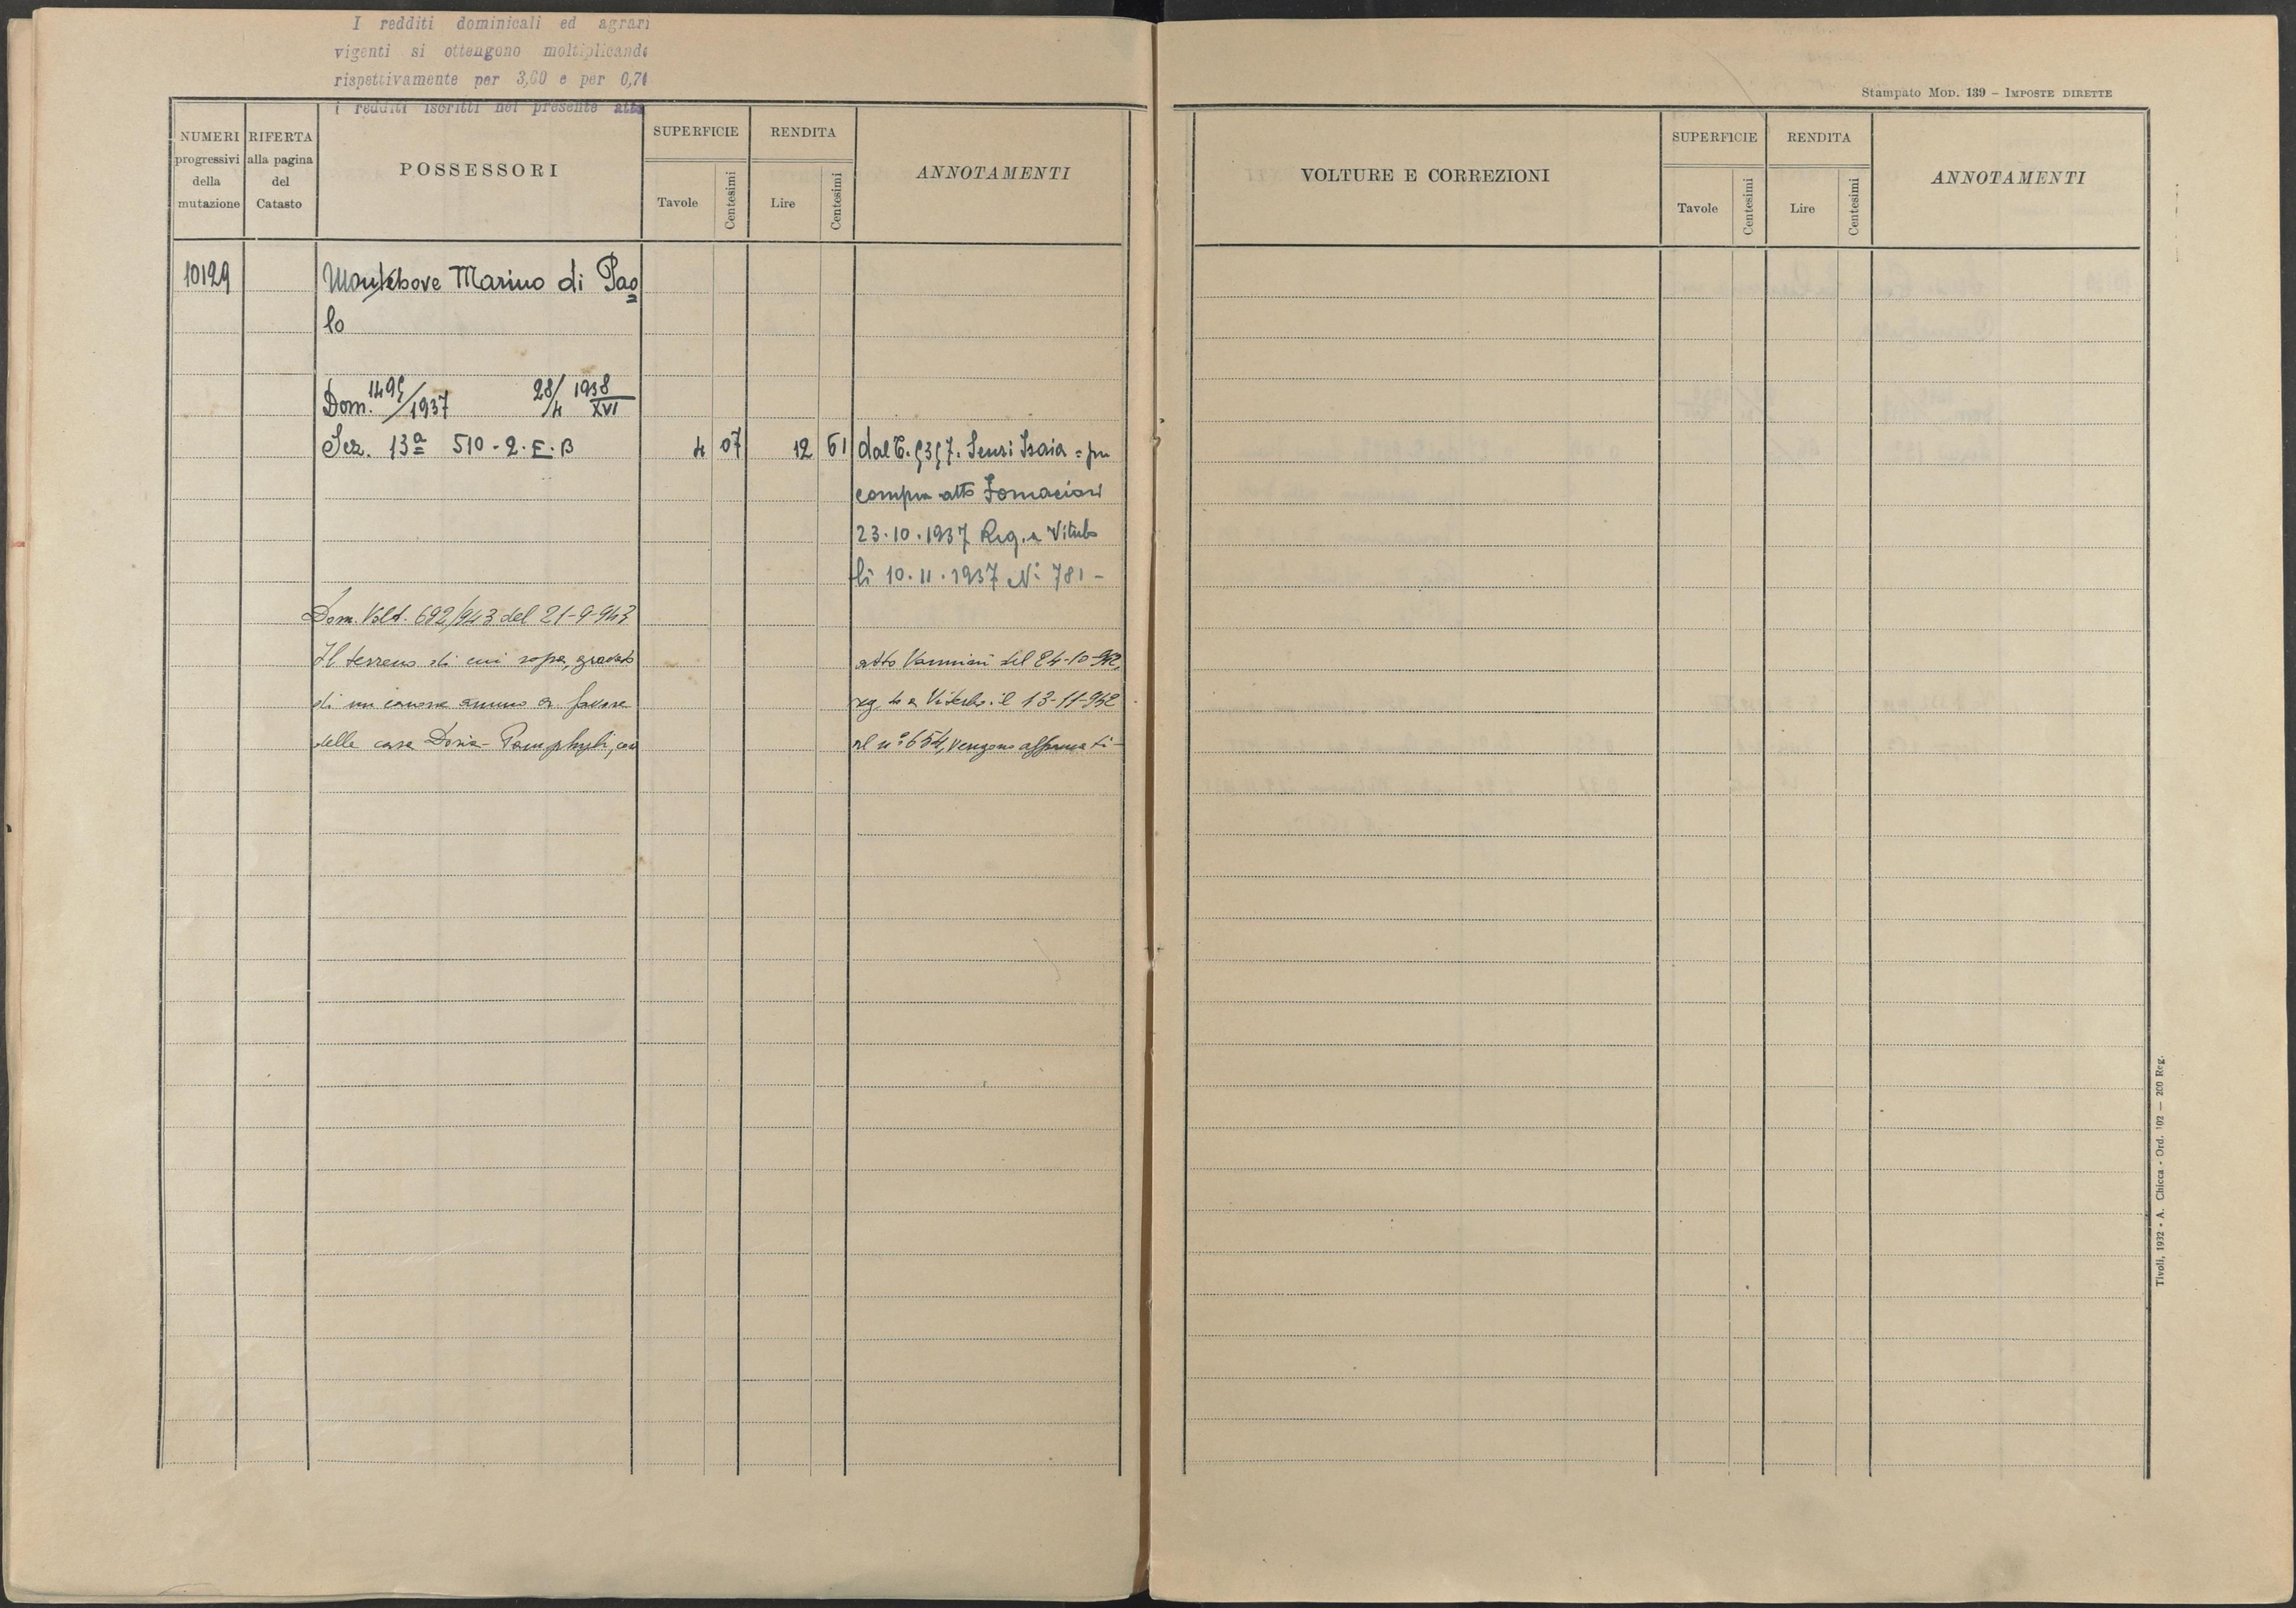 I redditi dominicali ed agrari
vigenti si ottengono moltiplicando
rispettivamente per 3,60 e per 0,71
i redditi iscritti nel presente atto
NUMERI
progressivi
della
mutazione
RIFERTA
alla pagina
del
Catasto
POSSESSORI
SUPERFICIE
Tavole
Centesimi
RENDITA
Lire
Centesimi
ANNOTAMENTI
10129
Montebove Marino di Pao=
lo
Dom. 1495/1937 28/4 1938 XVI
Sez. 13ª 510-2. E. B 4 07 12 61 dal C. 5357. Sensi Isaia = per
compra atto Fornaciari
23.10.1937 Reg. a Viterbo
li 10.11.1937 N° 781 -
Dom. Volt. 692/943 del 21-9-943
Il terreno di cui sopra, gravato atto Vannini del 24-10-942,
di un canone annuo a favore reg. to a Viterbo il 13-11-942
della casa Doria-Pamphyli, con al n° 654, vengono affrancati-
Stampato MOD. 139 – IMPOSTE DIRETTE
VOLTURE E CORREZIONI
SUPERFICIE
Tavole
Centesimi
RENDITA
Lire
Centesimi
ANNOTAMENTI
Tivoli, 1932 - A. Chicca - Ord. 102 — 200 Reg.